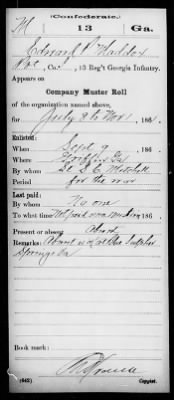 (Confederate.)
M 13 Ga.
Edward P Maddox
Pvt, Co. , 13 Reg't Georgia Infantry.
Appears on
Company Muster Roll
of the organization named above,
for July 8 to Nov 1, 1861.
Enlisted:
When Sept 9, 186
Where Griffin Ga
By whom Lt S. E. Mitchell
Period for the war
Last paid:
By whom No one
To what time 186 .
Present or absent Absent
Remarks: Absent sick at Blue Sulphur
Springs Va
Book mark:
(642) Copyist.